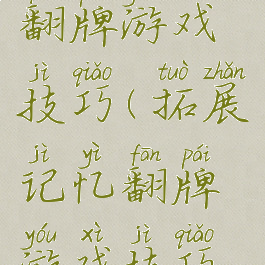 翻牌游戏
jì qiǎo tuò zhǎn
技巧(拓展
jì yì fān pái
记忆翻牌
yóu xì jì qiǎo
游戏技巧